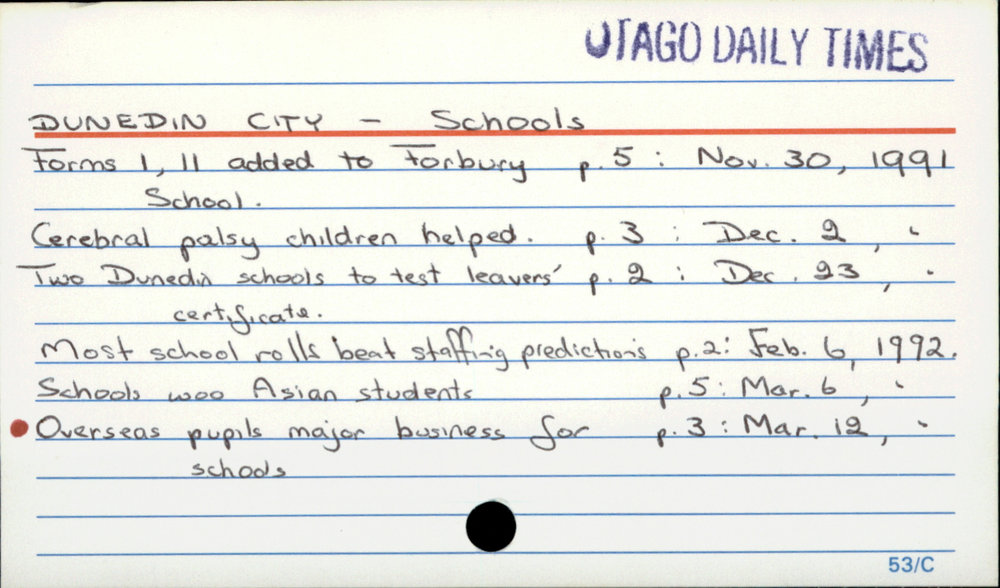 OTAGO DAILY TIMES
DUNEDIN CITY - Schools
Forms 1, 11 added to Forbury p.5 : Nov. 30, 1991
School.
Cerebral palsy children helped. p. 3 : Dec. 2, "
Two Dunedin schools to test leavers' p. 2 : Dec. 23, "
certificate.
Most school rolls beat staffing predictions p.2: Feb. 6, 1992.
Schools woo Asian students p.5: Mar. 6, "
Overseas pupils major business for p. 3 : Mar. 12, "
schools
53/C